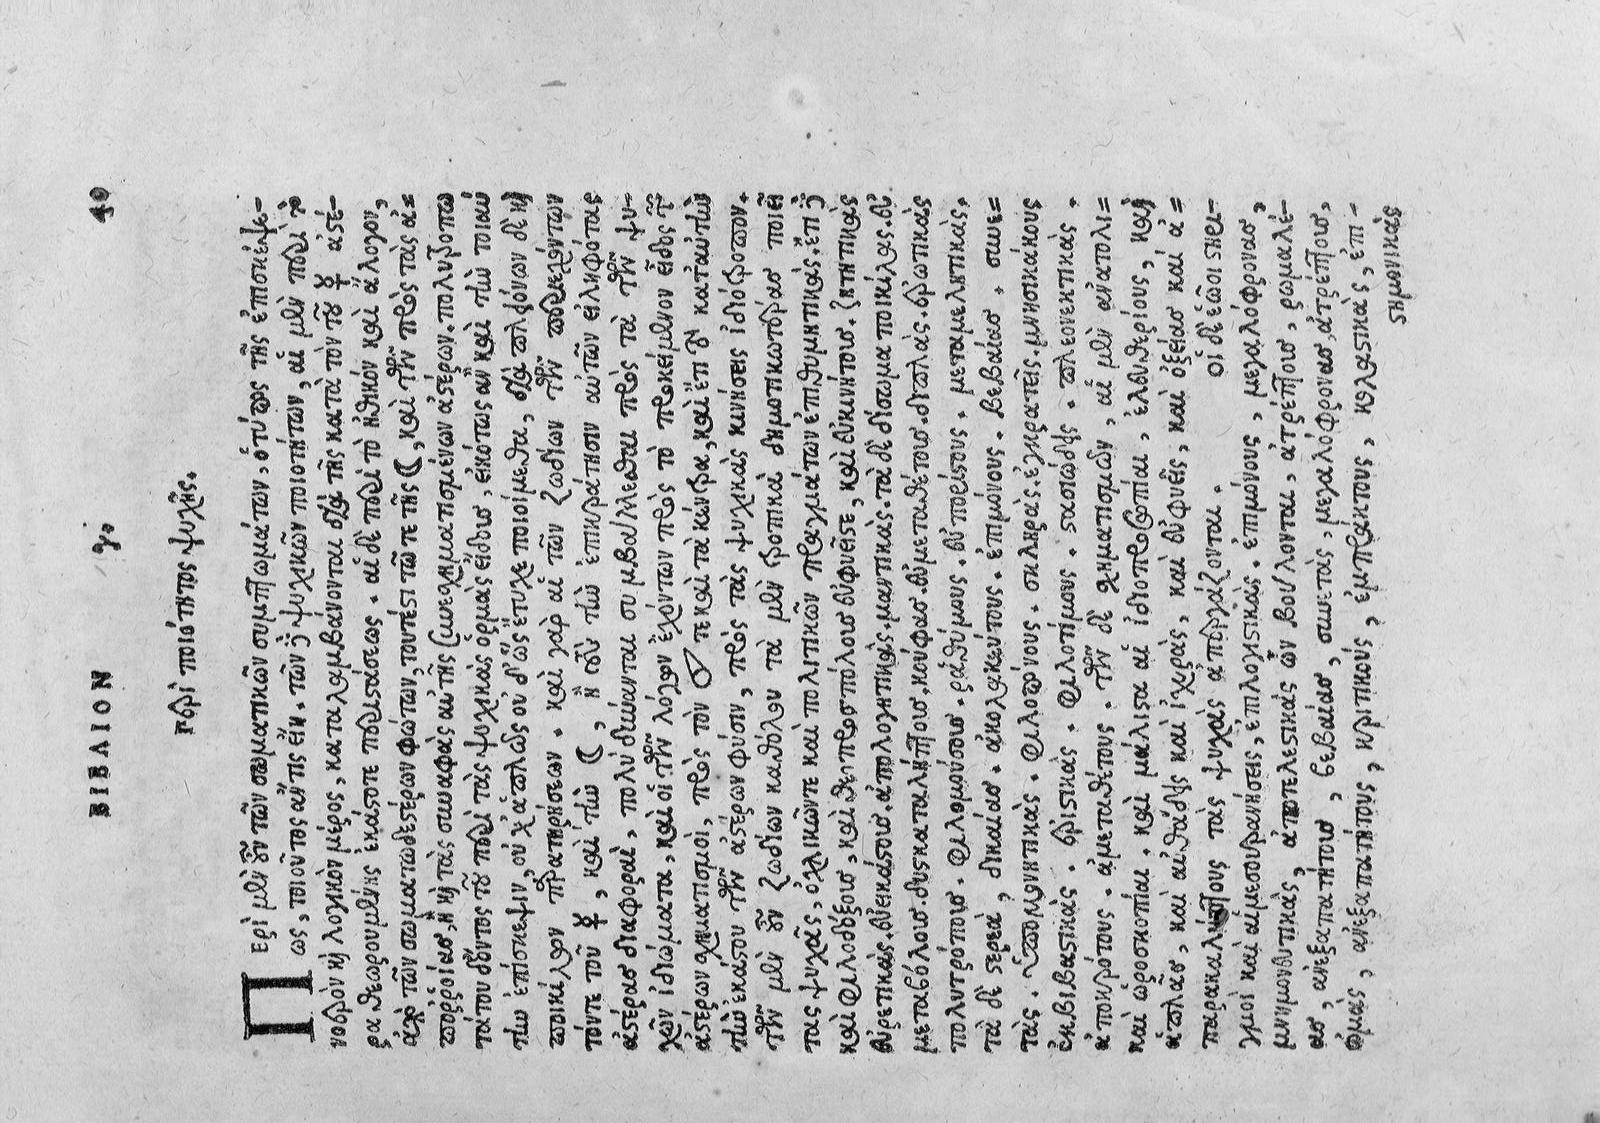 ΒΙΒΛΙΟΝ γ. 40
Περὶ ποιότητος ψυχῆς.
Περὶ μὲν οὖν τῶν σωματικῶν συμπτωμάτων, ὁ τύπος τῆς ἐπισκέψε-
ως, τοιοῦτος ἄν τις εἴη. τῶν δὲ ψυχικῶν ποιοτήτων, αἱ μὲν περὶ τὸ
νοερὸν καὶ λογικὸν μέρος, καταλαμβάνονται διὰ τῆς κατὰ τὸν τοῦ ☿ ἀστέ-
ρα θεωρουμένης ἑκάστοτε περιστάσεως. αἱ δὲ περὶ τὸ ἠθικὸν καὶ ἄλογον,
ἀπὸ τῶν σωματωδεστέρων φώτων, τουτέστι τῶν τε τῆς ☽, καὶ τῶν πρὸς τὰς ἀ=
πορροίας ἢ καὶ τὰς συναφὰς αὐτῆς συνεσχηματισμένων ἀστέρων. πολυτροπω
τάτου δ' ὄντος τοῦ περὶ τὰς ψυχικὰς ὁρμὰς εἴδους, εἰκότως ἂν καὶ τὴν τοιαύ
την ἐπίσκεψιν, οὐχ ἁπλῶς οὐδ' ὡς ἔτυχε ποιοίμεθα, διὰ πλειόνων δὲ καὶ
ποικίλων παρατηρήσεων. καὶ γὰρ αἱ τῶν ζωδίων τῶν περιεχόντων
τόν τε τοῦ ☿, καὶ τὴν ☽, ἢ τοὺς τὴν ἐπικράτησιν αὐτῶν εἰληφότας
ἀστέρας διαφοραὶ, πολὺ δύνανται συμβάλλεσθαι πρὸς τὰ τῶν ψυ-
χῶν ἰδιώματα, καὶ οἱ τῶν λόγον ἐχόντων πρὸς τὸ προκείμενον εἶδος τῶν
ἀστέρων σχηματισμοὶ, πρὸς τὸν ☉ τε καὶ τὰ κέντρα, καὶ ἔτι τὸ κατ' αὐτὴν
τὴν ἑκάστου τῶν ἀστέρων φύσιν, πρὸς τὰς ψυχικὰς κινήσεις ἰδιότροπον.
τῶν μὲν οὖν ζωδίων καθόλου τὰ μὲν τροπικὰ δημοτικωτέρας ποιεῖ
τὰς ψυχὰς, ὀχλικῶν τε καὶ πολιτικῶν πραγμάτων ἐπιθυμητικὰς. ἔτι δὲ
καὶ φιλοδόξους, καὶ θεοπροσπόλους εὐφυεῖς τε, καὶ εὐκινήτους. ζητητικὰς
εὑρετικὰς. εὐεικάστους. ἀπολογητικὰς. μαντικὰς. τὰ δὲ δίσωμα ποικίλας. εὐ
μεταβόλους. δυσκαταλήπτους. κούφας. εὐμεταθέτους. διπλὰς. ἐρωτικὰς
πολυτρόπους. φιλομούσους. ῥαθύμους. εὐπορίστους. μεταμελητικὰς,
τὰ δὲ στερεὰ, δικαίας. ἀκολακεύτους. ἐπιμόνους. βεβαίας. συνε=
τὰς. ὑπομενητικὰς. φιλοπόνους. σκληρὰς. ἐγκρατεῖς. μνησικάκους
ἐκβιβαστικὰς. ἐριστικὰς. φιλοτίμους. στασιώδεις. πλεονεκτικὰς.
ἀποκρότους. ἀμεταθέτους. τῶν δὲ σχηματισμῶν, αἱ μὲν ἀνατολι=
καὶ ὡροσκοπίαι. καὶ μάλιστα αἱ ἰδιοπροσωπίαι. ἐλευθερίους, καὶ
ἁπλᾶς, καὶ αὐθάδεις καὶ ἰσχυρὰς, καὶ εὐφυεῖς, καὶ ὀξείας καὶ ἀ=
παρακαλύπτους τὰς ψυχὰς ἀπεργάζονται. οἱ δὲ ἑῷοι στηρι-
γμοὶ καὶ αἱ μεσουρανήσεις, ἐπιλογιστικὰς. ἐπιμόνους, μεγαλόφρονας,
μνημονευτικὰς, ἀποτελεστικὰς ὧν βούλονται, ἀτρέπτους, ῥωμαλέ-
ας, ἀνεξαπατήτους, βεβαίας, συνετὰς, μεγαλόφρονας, ἀτρέπτους,
ὠμὰς, ἀνεξαπατήτους, κριτικοὺς, ἐμπράκτους, κολαστικὰς, ἐπι-
στημονικὰς